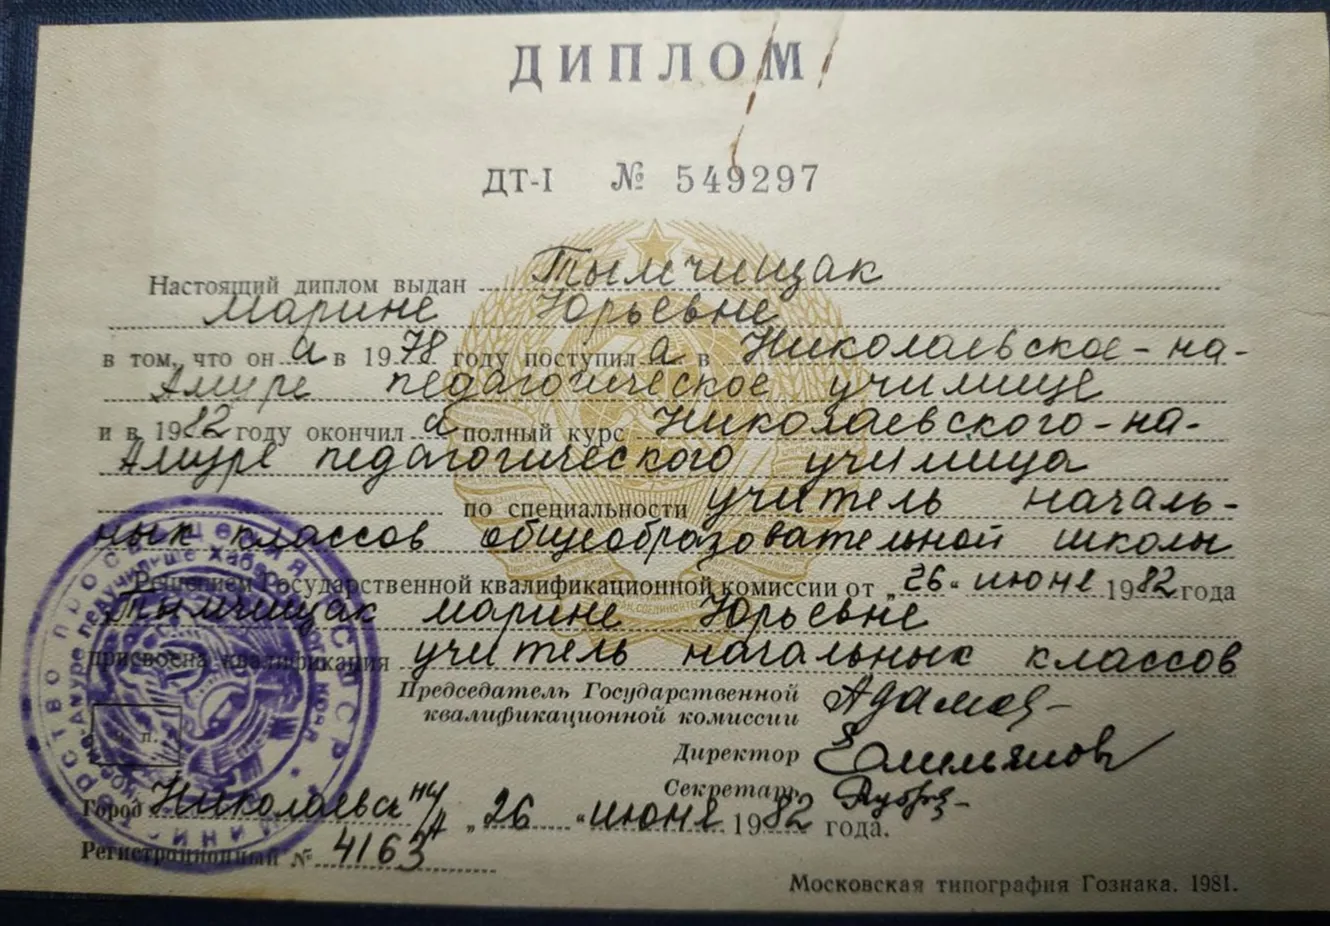 ДИПЛОМ
ДТ-I № 549297
Настоящий диплом выдан Тымчищак
Марине Юрьевне
в том, что он а в 1978 году поступил а в Николаевское-на-
Амуре педагогическое училище
и в 1982 году окончил а полный курс Николаевского-на-
Амуре педагогического училища
по специальности учитель началь-
ных классов общеобразовательной школы
Решением Государственной квалификационной комиссии от „26“ июня 1982 года
Тымчищак Марине Юрьевне
присвоена квалификация учитель начальных классов
Председатель Государственной
квалификационной комиссии
Директор
Секретарь
м. п.
Город Николаевск н/А „26“ июня 1982 года.
Регистрационный № 4163
Московская типография Гознака. 1981.